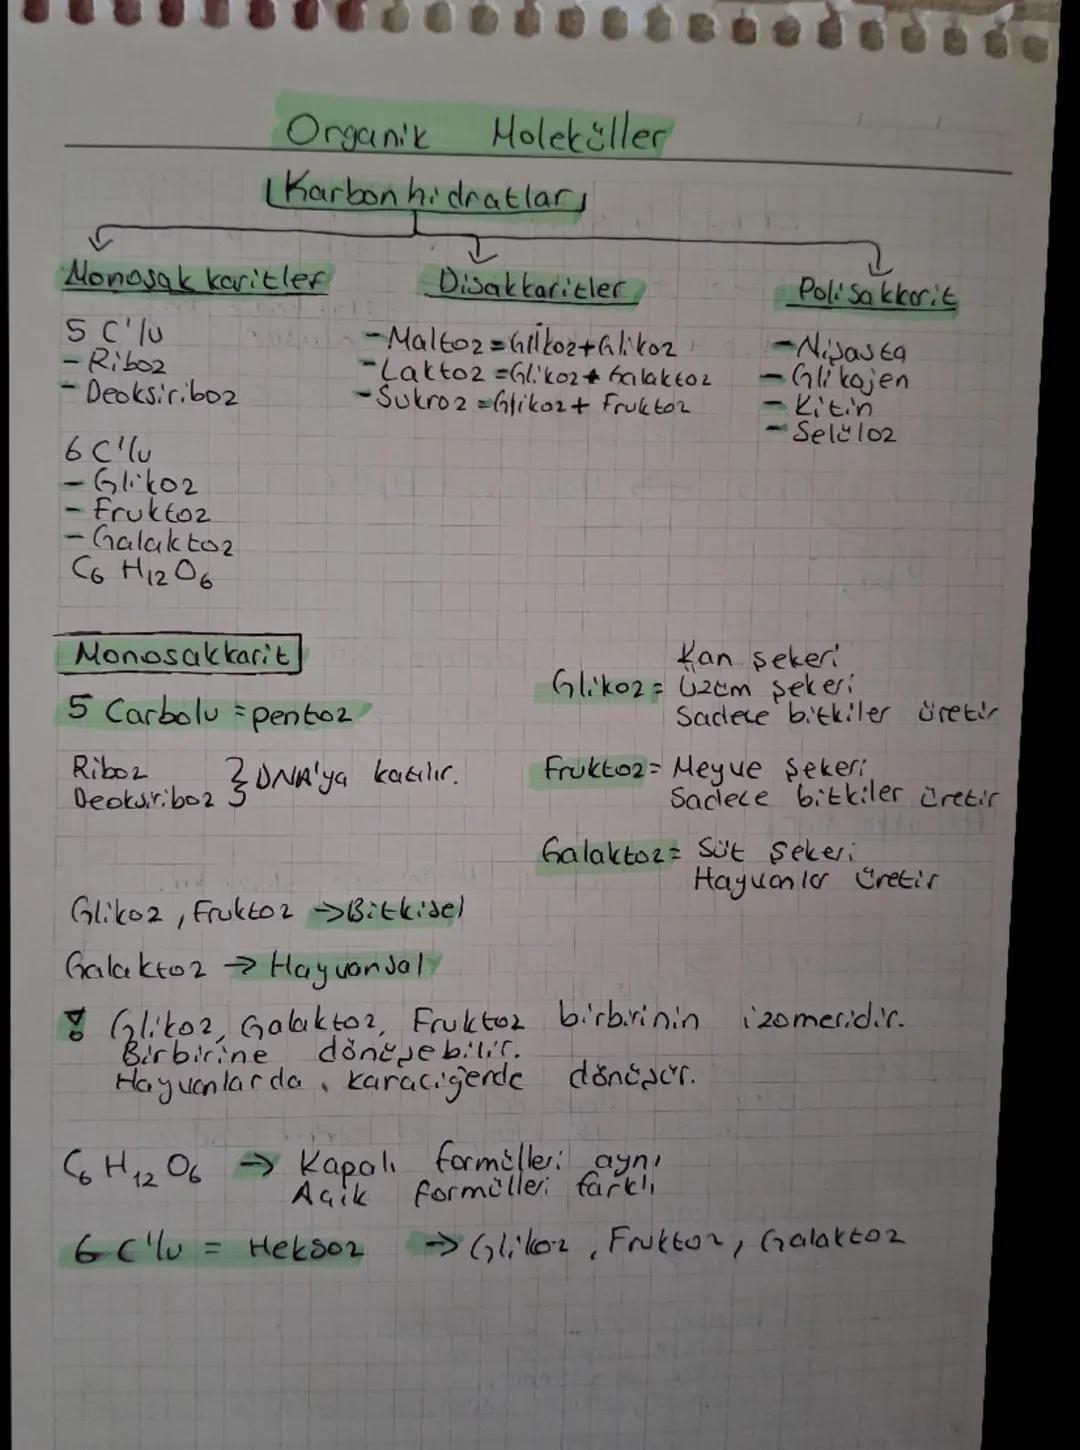 Organik Moleküller
Karbonhidratlar
Monosakkaritler
5 C'lu
- Riboz
- Deoksiriboz
6 C'lu
- Glikoz
- Fruktoz
- Galaktoz
C6 H12 O6
Disakkaritler
- Maltoz = Glikoz + Glikoz
- Laktoz = Glikoz + Galaktoz
- Sukroz = Glikoz + Fruktoz
Polisakkarit
- Nişasta
- Glikojen
- Kitin
- Selüloz
Monosakkarit
5 Carbolu = pentoz
Riboz
Deoksiriboz } DNA'ya katılır.
Kan şekeri
Glikoz = Üzüm şekeri
Sadece bitkiler üretir
Fruktoz = Meyve şekeri
Sadece bitkiler üretir
Galaktoz = Süt şekeri
Hayvanlar üretir
Glikoz, Fruktoz → Bitkisel
Galaktoz → Hayvansal
! Glikoz, Galaktoz, Fruktoz birbirinin izomeridir.
Birbirine dönüşebilir.
Hayvanlarda, karaciğerde dönüşür.
C6 H12 O6 → Kapalı formülleri aynı
Açik formülleri farklı
6 C'lu = Heksoz → Glikoz, Fruktoz, Galaktoz